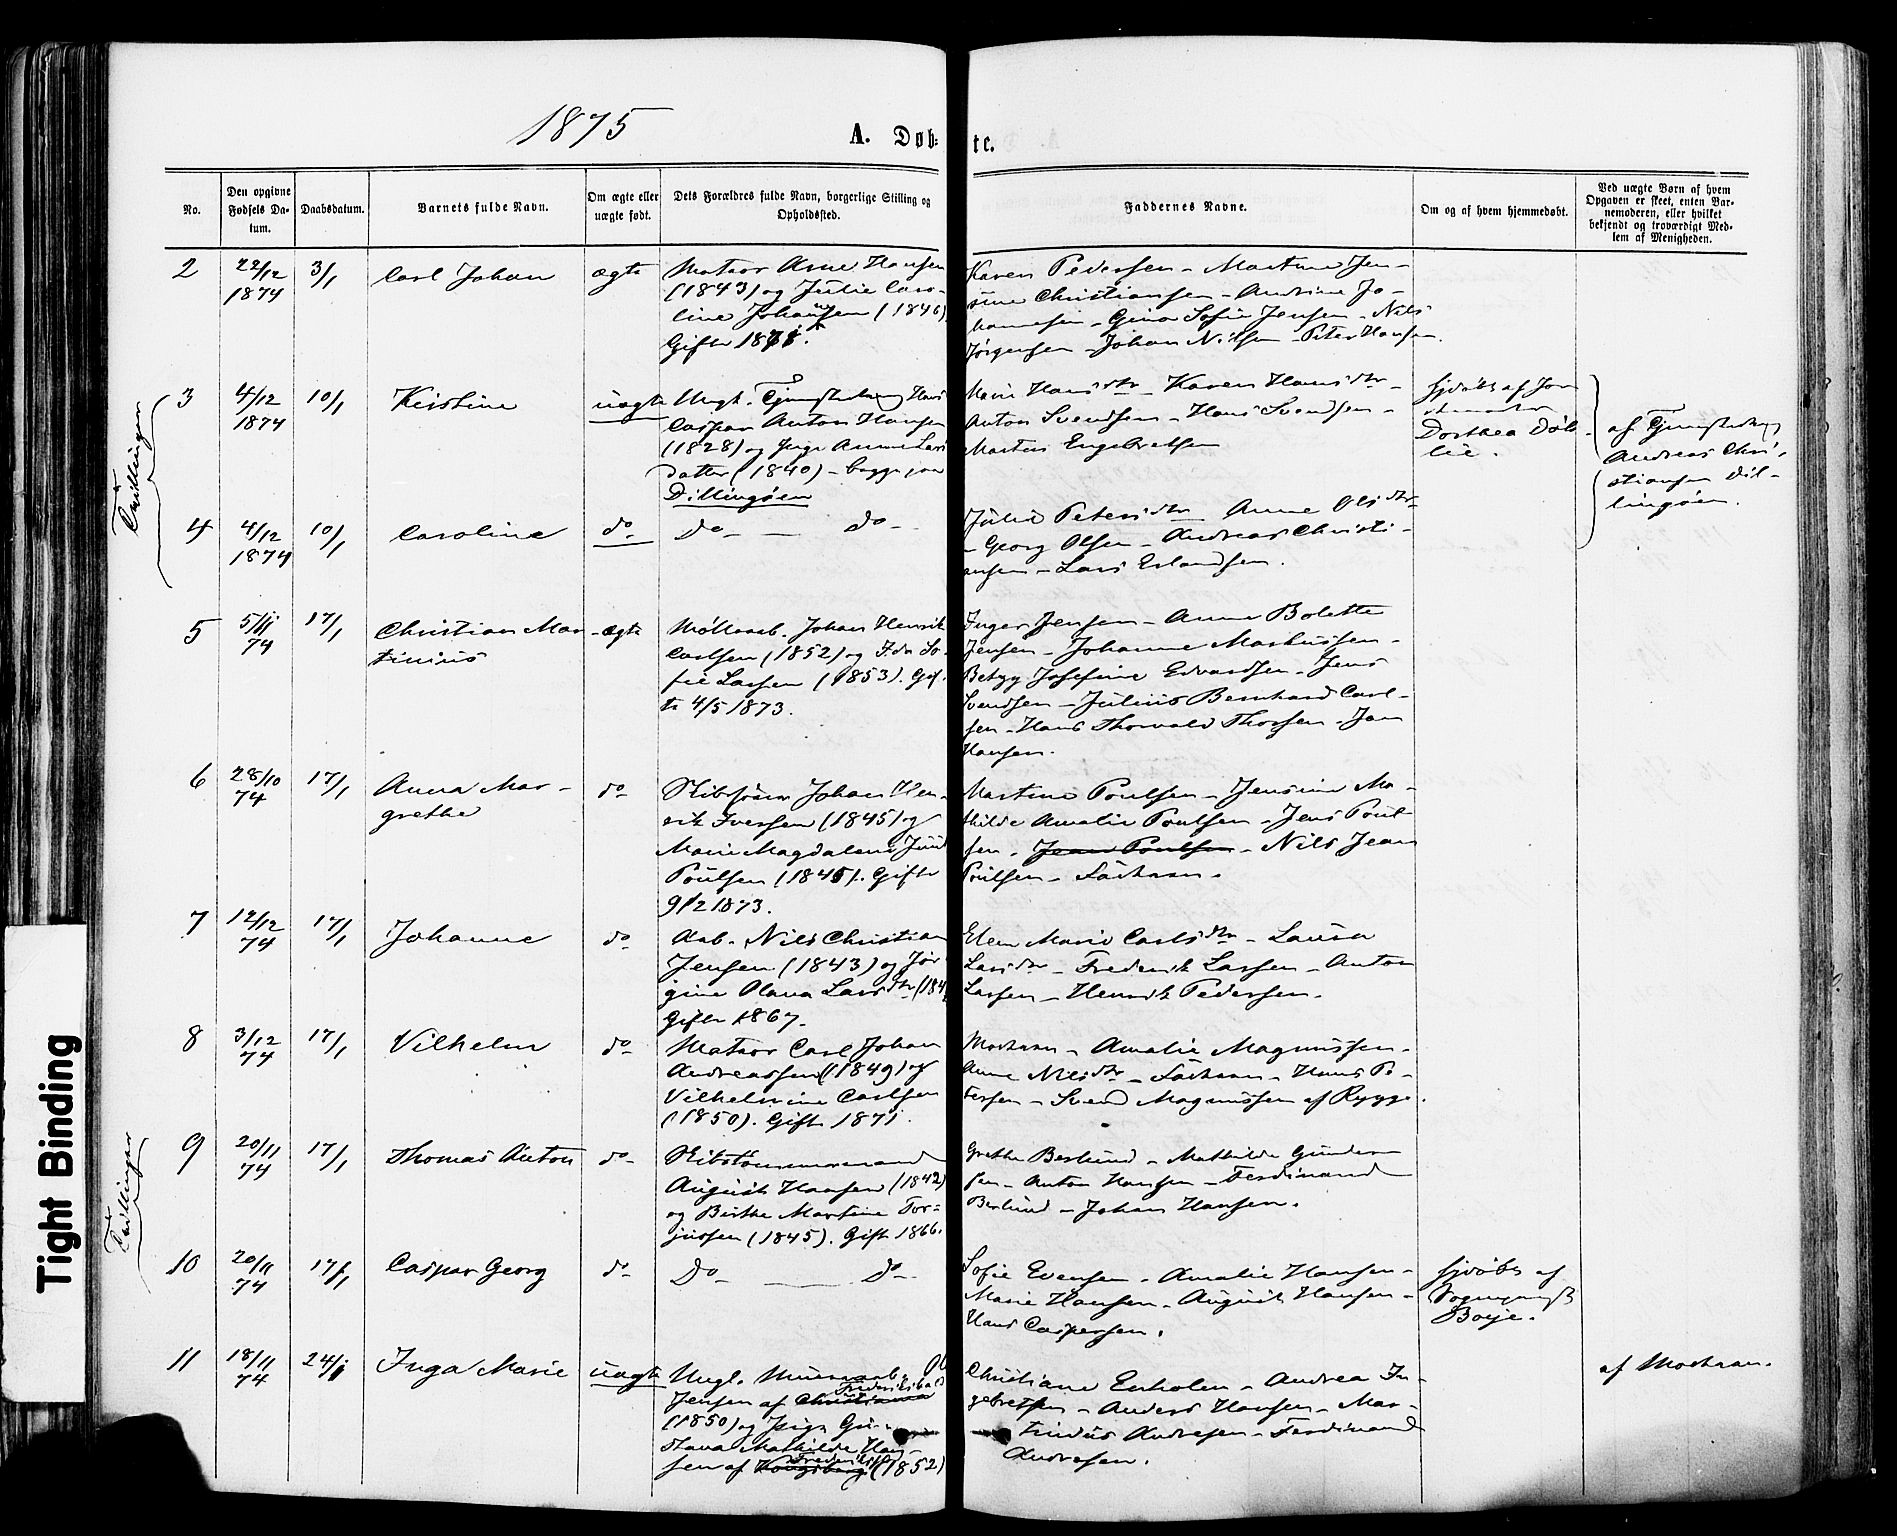 1875
A. Døb-te.
No.
Den opgivne Fødsels Da-tum.
Daabsdatum.
Barnets fulde Navn.
Om ægte eller uægte født.
Dets Forældres fulde Navn, borgerlige Stilling og Opholdssted.
Faddernes Navne.
Om og af hvem hjemmedøbt.
Ved uægte Børn af hvem Opgaven er skeet, enten Bar-nemoderen, eller hvilket bekjendt og troværdigt Med-lem af Menigheden.
2
22/12 1874
3/1
Carl Johan
ægte
Matros Arne Hansen
(1843) og Julie Caro-
line Johansen (1846)
Gifte 1871.
Karen Pedersen - Martine Jen-
sine Christiansen - Andrine Jo-
hannesen - Gina Sofie Jensen - Nils
Jørgensen - Johan Nilsen - Peter Hansen.
Tvillinger
3
4/12 1874
10/1
Kristine
uægte
Ungk. Hans
Caspar Anton Hansen
(1828) og Pige Anne Lars
datter (1840) - begge paa
Dillingøen
Marie Hansdtr - Karen Hansdtr -
Anton Svendsen - Hans Svendsen -
Martin Engebretsen
hjdøbt af Jor
demoder
Dorthea Døh-
lie.
af
Andreas Chri-
stiansen Dil-
lingøen.
4
4/12 1874
10/1
Caroline
do
Do — do -
Julie Petersdtr - Anne Olsdtr -
- Georg Olsen - Andreas Christi-
ansen - Lars Erlandsen.
5
5/11 74
17/1
Christian Mar
tinius
ægte
Møllearb. Johan Henrik
Carlsen (1852) og Ida So-
fie Larsen (1853). Gif-
te 4/5 1873.
Inger Jensen - Anne Bolette
Jensen - Johanne Markussen -
Betzy Josefine Edvardsen - Jens
Svendsen - Julius Bernhard Carl-
sen - Hans Thorvald Thorsen - Jan
Hansen.
6
28/10 74
17/1
Anna Mar-
grethe
do
Skibsfører Johan Hen-
rik Iversen (1845) og
Marie Magdalene Juul
Poulsen (1845). Gifte
9/2 1873.
Martine Poulsen - Jensine Ma-
thilde Amalie Poulsen - Jens Poul-
sen - Jean Poulsen - Nils Jean
Poulsen - Faderen.
7
12/12 74
17/1
Johanne
do
Arb. Nils Christian
Jensen (1843) og Jør
gine Olava Larsdtr (184
Gifte 1867.
Elen Marie Carlsdtr - Laura
Larsdtr - Frederik Larsen - Anton
Larsen - Henrik Pedersen.
8
3/12 74
17/1
Vilhelm
do
Matros Carl Johan
Andreassen (1849) og
Vilhelmine Carlsen
(1850). Gifte 1871.
Moderen - Amalie Magnussen -
Anne Nilsdtr - Faderen - Hans Pe-
tersen - Svend Magnussen af Rygge.
Tvillinger
9
20/11 74
17/1
Thomas Anton
do
Skibstømmermand
August Hansen (1842)
og Birthe Martine Tor-
jussen (1845). Gifte 1866.
Grethe Berlund - Mathilde Gunder-
sen - Anton Hansen - Ferdinand
Berlund - Johan Hansen.
10
20/11 74
17/1
Caspar Georg
do
Do — do -
Sofie Evensen - Amalie Hansen -
Marie Hansen - August Hansen -
Hans Caspersen.
hjdøbt af
Sogneprest
Boije.
11
18/11 74
24/1
Inga Marie
uægte
Ungk. Murerarb.
Jensen af Christiania Frederikshald
(1850) og Pige Gu-
stava Mathilde Han-
sen af Kongsberg (1852)
Christiane Enholen - Andrea In-
gebretsen - Anders Hansen - Mar-
tinius Andresen - Ferdinand
Andresen.
af Moderen.
Tight Binding